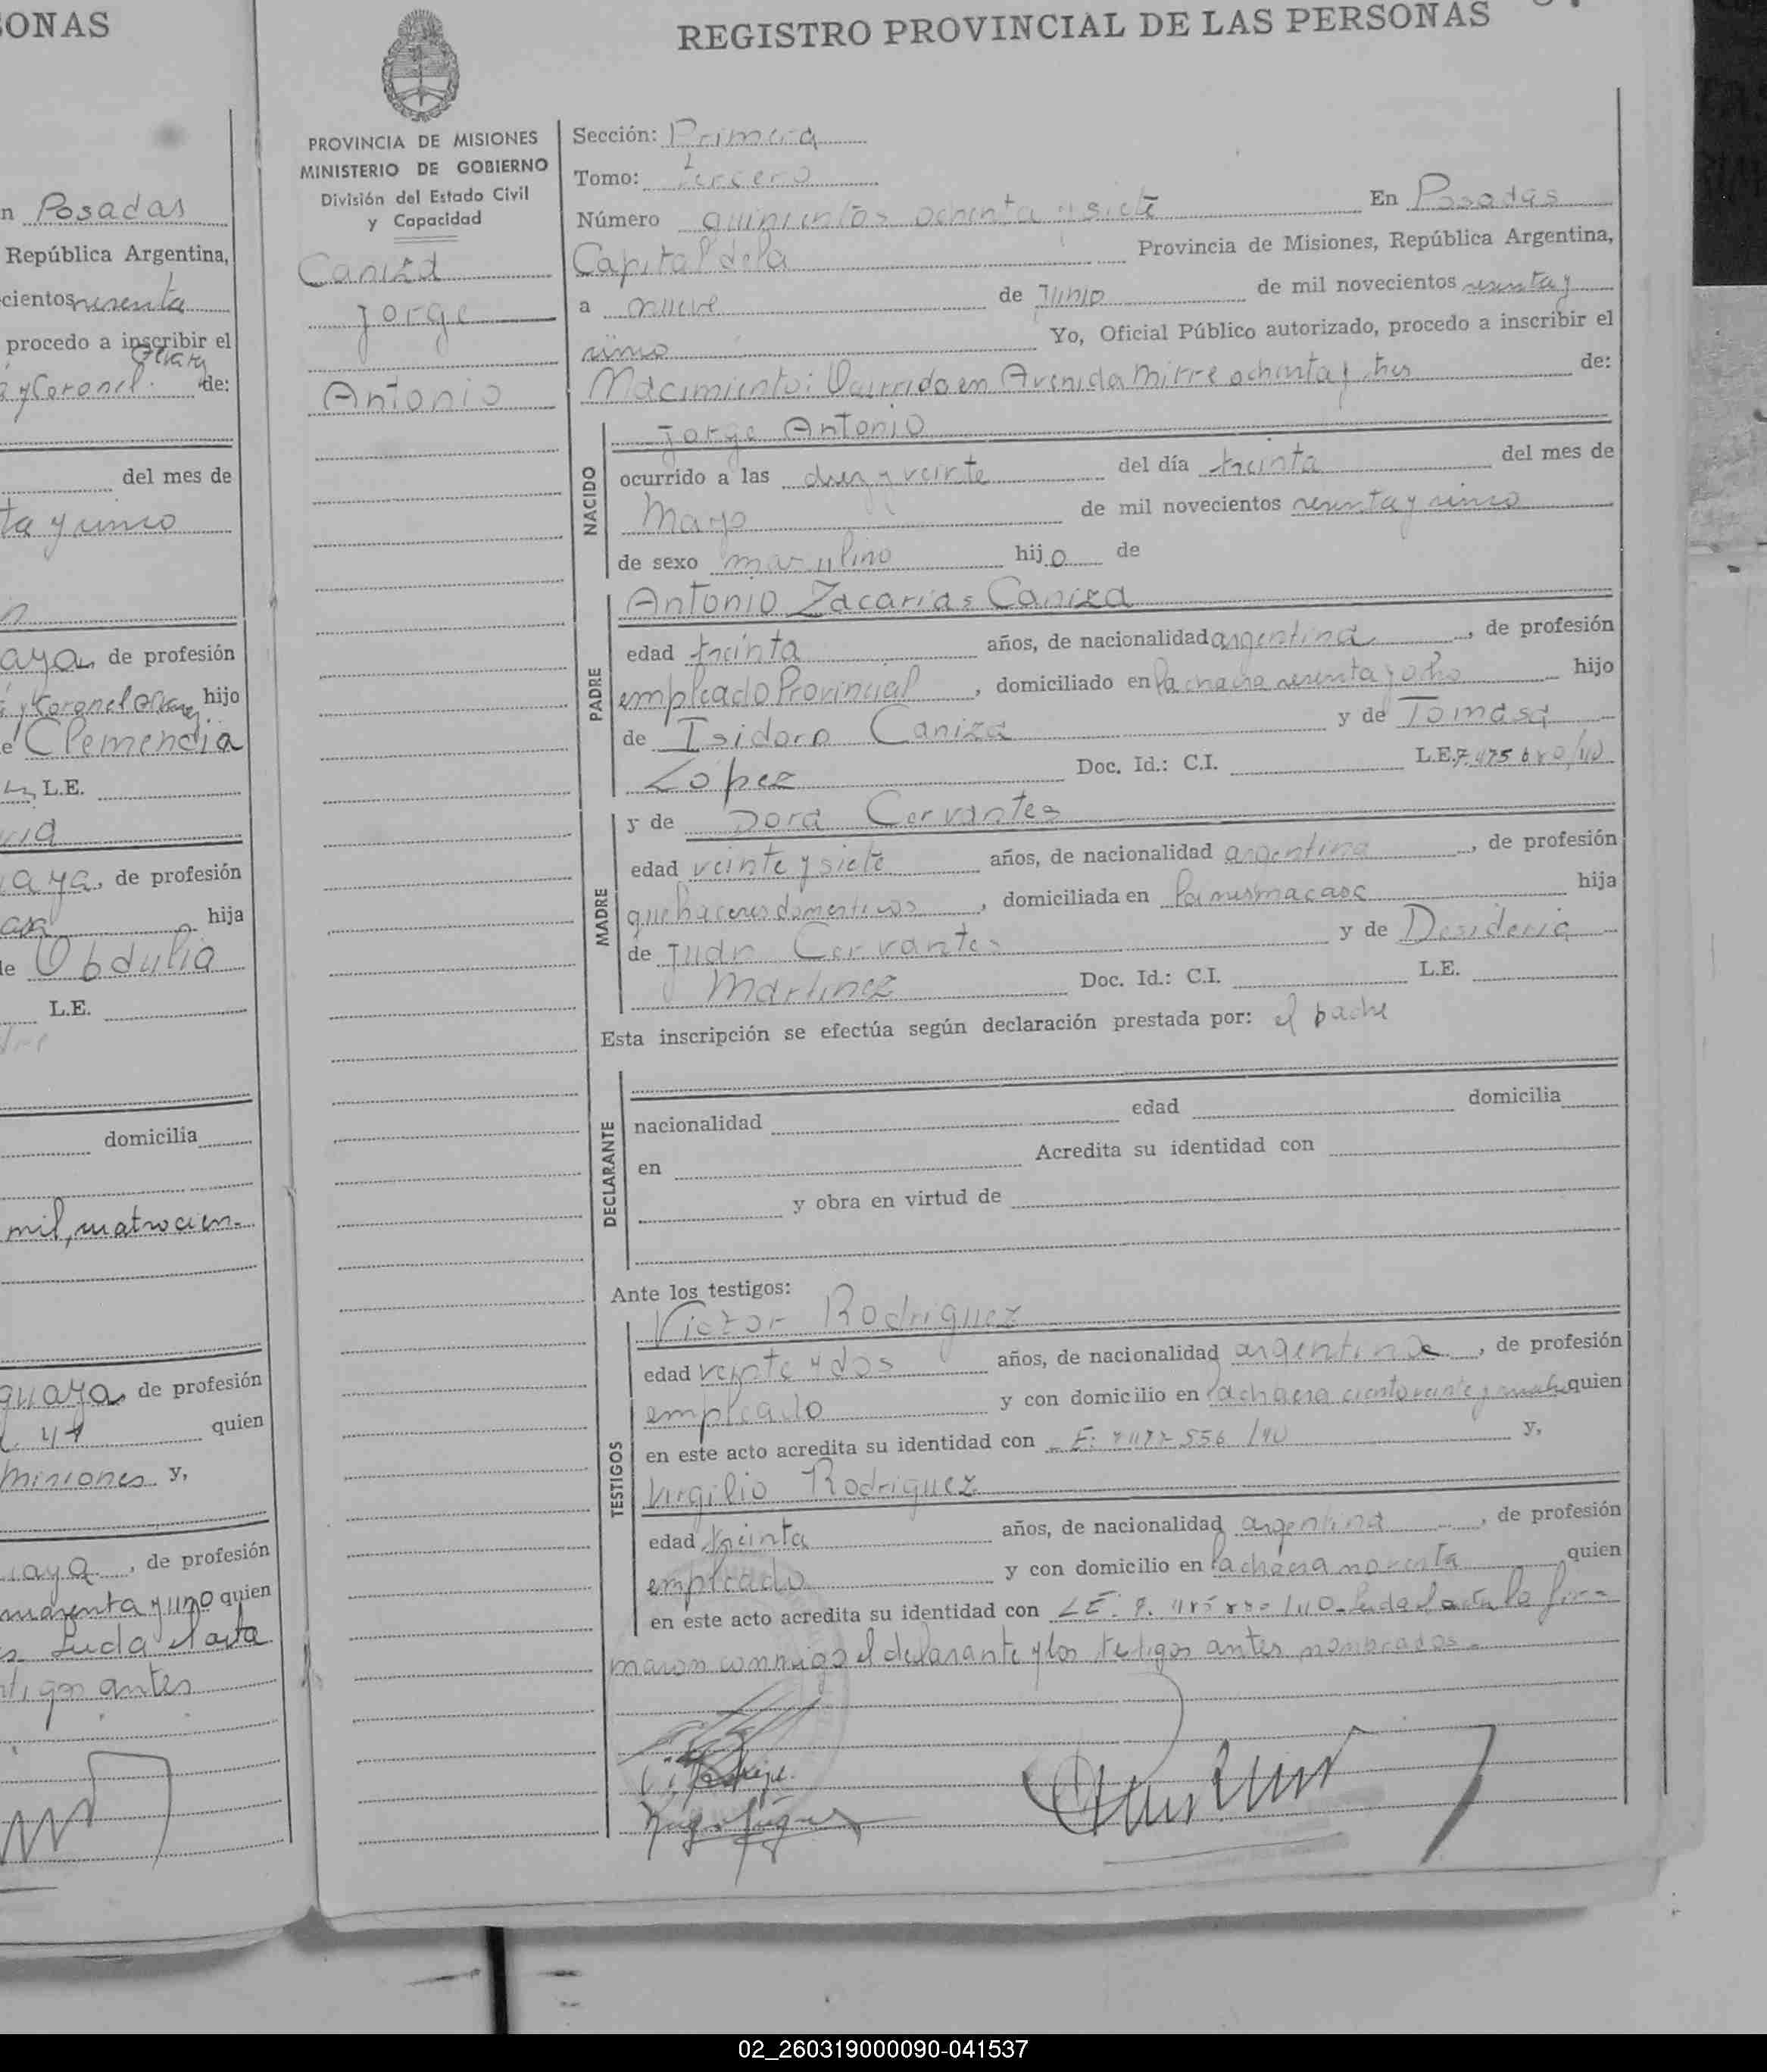 SONAS
n Posadas
República Argentina,
cientos sesenta
procedo a inscribir el
y Coronel. de:
del mes de
ta y cinco
aya, de profesión
y Coronel hijo
e Clemencia
L.E.
aya, de profesión
hija
de Obdulia
L.E.
domicilia
mil, cuatrocien-
guaya, de profesión
quien
Misiones y,
uaya, de profesión
cuarenta y uno quien
Leída el acta
tigos antes
REGISTRO PROVINCIAL DE LAS PERSONAS
PROVINCIA DE MISIONES
MINISTERIO DE GOBIERNO
División del Estado Civil
y Capacidad
Caniza
Jorge
Antonio
Sección: Primera
Tomo: Tercero
Número quinientos ochenta y siete En Posadas
Capital de la Provincia de Misiones, República Argentina,
a nueve de Junio de mil novecientos sesenta y
cinco Yo, Oficial Público autorizado, procedo a inscribir el
Nacimiento: Ocurrido en Avenida Mitre ochenta y tres de:
Jorge Antonio
NACIDO
ocurrido a las diez y veinte del día treinta del mes de
Mayo de mil novecientos sesenta y cinco
de sexo masculino hijo de
PADRE
Antonio Zacarias Caniza
edad treinta años, de nacionalidad argentina, de profesión
empleado Provincial, domiciliado en la chacra sesenta y ocho hijo
de Isidoro Caniza y de Tomasa
López Doc. Id.: C.I. L.E.
MADRE
y de Dora Cervantes
edad veinte y siete años, de nacionalidad argentina, de profesión
quehaceres domesticos, domiciliada en la misma casa hija
de Juan Cervantes y de Desideria
Martinez Doc. Id.: C.I. L.E.
Esta inscripción se efectúa según declaración prestada por: el padre
DECLARANTE
nacionalidad edad domicilia
en Acredita su identidad con
y obra en virtud de
Ante los testigos:
TESTIGOS
Victor Rodriguez
edad veinte y dos años, de nacionalidad argentina, de profesión
empleado y con domicilio en la chacra ciento veinte y quien
en este acto acredita su identidad con y,
Virgilio Rodriguez
edad treinta años, de nacionalidad argentina, de profesión
empleado y con domicilio en la chacra noventa quien
en este acto acredita su identidad con LE: Leida el acta la fir-
maron conmigo el declarante y los testigos antes nombrados.-
02_260319000090-041537